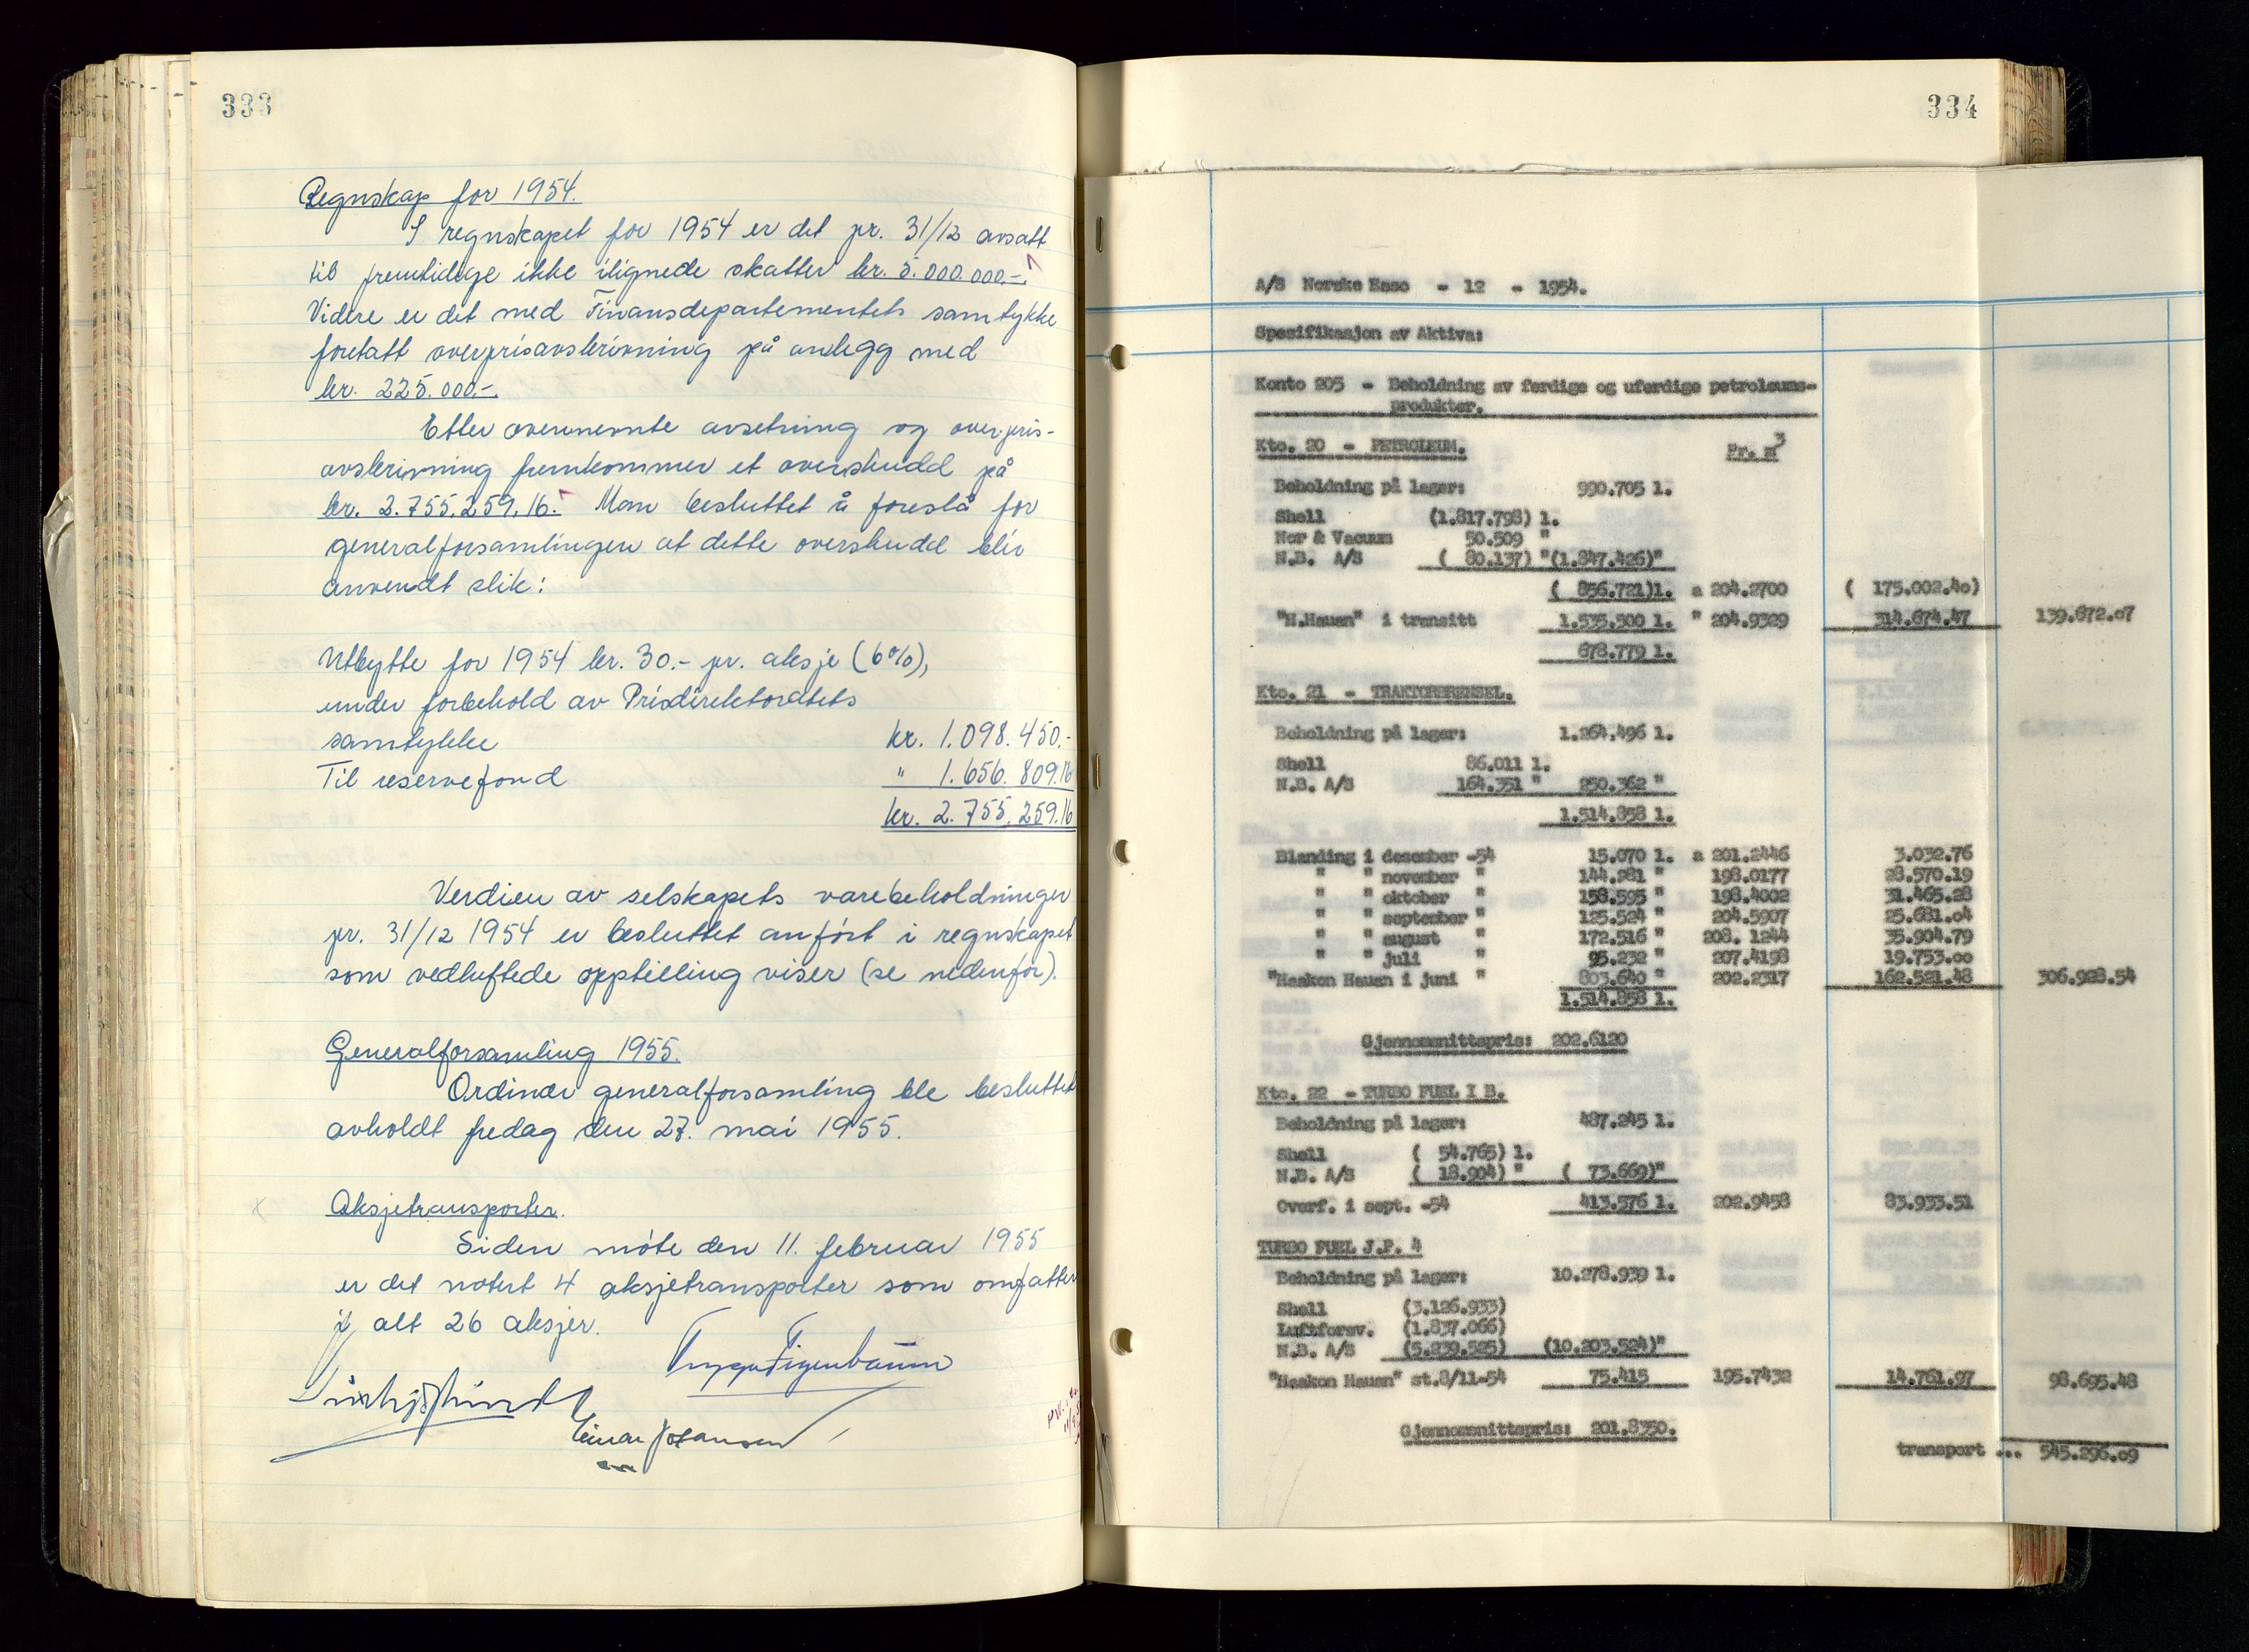 333
Regnskap for 1954.
I regnskapet for 1954 er det pr. 31/12 avsatt
til fremtidige ikke ilignede skatter kr. 5.000.000.-.
Videre er det med Finansdepartementets samtykke
foretatt overprisavskrivning på anlegg med
kr. 225.000.-.
Etter ovennevnte avsetning og overpris-
avskrivning fremkommer et overskudd på
kr. 2.755.259.16. Man besluttet å foreslå for
generalforsamlingen at dette overskudd blir
anvendt slik:
Utbytte for 1954 kr. 30.- pr. aksje (6%),
under forbehold av Prisdirektoratets
samtykke kr. 1.098.450.-
Til reservefond " 1.656.809.16
kr. 2.755.259.16
Verdien av selskapets varebeholdninger
pr. 31/12 1954 er besluttet anført i regnskapet
som vedheftede oppstilling viser (se nedenfor).
Generalforsamling 1955.
Ordinær generalforsamling ble besluttet
avholdt fredag den 27. mai 1955.
Aksjetransporter.
Siden møte den 11. februar 1955
er det notert 4 aksjetransporter som omfatter
i alt 26 aksjer.
Einar Johansen
334
A/S Norske Esso - 12 - 1954.
Spesifikasjon av Aktiva:
Konto 205 - Beholdning av ferdige og uferdige petroleums-
produkter.
Kto. 20 - PETROLEUM. Pr. m3
Beholdning på lager: 990.705 l.
Shell (1.817.798) l.
Nor & Vacuum 50.509 "
N.B. A/S ( 80.137) "(1.847.426)"
( 856.721)l. a 204.2700 ( 175.002.40)
"H.Hauan" i transitt 1.535.500 l. " 204.9329 314.674.47 139.672.07
678.779 l.
Kto. 21 - TRAKTORBRENSEL.
Beholdning på lager: 1.264.496 l.
Shell 86.011 l.
N.B. A/S 164.351 " 250.362 "
1.514.858 l.
Blanding i desember -54 15.070 l. a 201.2446 3.032.76
" " november " 144.281 " 198.0177 28.570.19
" " oktober " 158.595 " 198.4002 31.465.28
" " september " 125.524 " 204.5907 25.681.04
" " august " 172.516 " 208. 1244 35.904.79
" " juli " 95.232 " 207.4198 19.753.00
"Haakon Hauan i juni " 803.640 " 202.2317 162.521.48 306.928.54
1.514.858 l.
Gjennomsnittspris: 202.6120
Kto. 22 - TURBO FUEL I B.
Beholdning på lager: 487.245 l.
Shell ( 54.765) l.
N.B. A/S ( 18.904) " ( 73.669)"
Overf. i sept. -54 413.576 l. 202.9458 83.933.51
TURBO FUEL J.P. 4
Beholdning på lager: 10.278.939 l.
Shell (3.126.933)
Luftforsv. (1.837.066)
N.B. A/S (5.239.525) (10.203.524)"
"Haakon Hauan" st.8/11-54 75.415 195.7432 14.761.97 98.695.48
Gjennomsnittspris: 201.8350.
transport ... 545.296.09